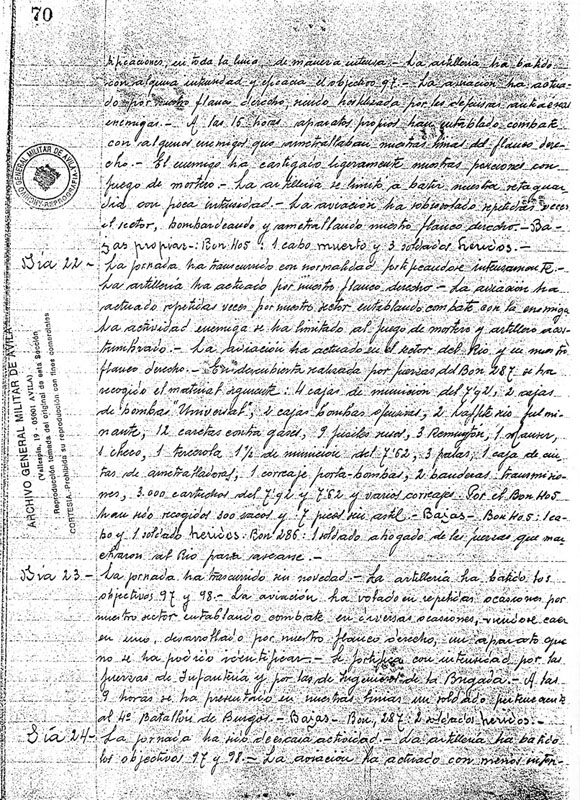 70
tificaciones, en toda la linea, de manera intensa.- La artilleria ha batido
con alguna intensidad y eficacia el objectivo 97.- La aviación ha actua-
do por nuestro flanco derecho, siendo hostilizada por las defensas antiaereas
enemigas.- A las 15 horas aparatos propios han entablado combate
con algunos enemigos que ametrallaban nuestras lineas del flanco dere-
cho.- El enemigo ha castigado ligeramente nuestras posiciones con
fuego de mortero.- La artilleria se limitó a batir nuestra retaguar
dia con poca intensidad.- La aviación ha sobrevolado repetidas veces
el sector, bombardeando y ametrallando nuestro flanco derecho.- Ba-
jas propias: Bon 405: 1 cabo muerto y 3 soldados heridos.-
Dia 22- La jornada ha transcurrido con normalidad fortificandose intensamente.-
La artilleria ha actuado por nuestro flanco derecho.- La aviación ha
actuado repetidas veces por nuestro sector entablando combate con la enemiga
La actividad enemiga se ha limitado al fuego de mortero y artillero acos-
tumbrado.- La aviación ha actuado en el sector del Rio y en nuestro
flanco derecho.- En descubierta realizada por fuerzas del Bon 287 se ha
recogido el material siguiente: 4 cajas de municion del 7'92, 2 cajas
de bombas "Universal", 2 cajas bombas ofensivas, 2 fulmi-
nante, 12 caretas contra gases, 9 fusiles rusos, 3 Remington, 1 Mauser,
1 checo, 1 tercerola 1½ de municion del 7'62, 3 palas, 1 caja de cin-
tas de ametralladoras, 1 correaje porta-bombas, 2 banderas transmisio-
nes, 3.000 cartuchos del 7'92 y 7'62 y varios correajes. Por el Bon 405
han sido recogidos 300 sacos y 7 picos sin astil.- Bajas- Bon 405: 1 ca-
bo y 1 soldado heridos: Bon 286: 1 soldado ahogado de las fuerzas que mar
charon al Rio para asearse.-
Dia 23- La jornada ha trascurrido sin novedad.- La artilleria ha batido los
objectivos 97 y 98.- La aviación ha volado en repetidas ocasiones por
nuestro sector entablando combate en diversas ocasiones, viendose caer
en uno, desarrollado por nuestro flanco derecho, un aparato que
no se ha podido identificar.- Se fortifica con intensidad por las
fuerzas de Infanteria y por las de Ingenieros de la Brigada.- A las
9 horas se ha presentado en nuestras lineas un soldado perteneciente
al 4º Batallón de Burgos.- Bajas- Bon, 287 2 soldados heridos.-
Dia 24- La jornada ha sido de escasa actividad.- La artilleria ha batido
los objectivos 97 y 98.- La aviación ha actuado con menos inten-
ARCHIVO GENERAL MILITAR DE AVILA
(Vallespín, 19 - 05001 AVILA)
Reproducción tomada del original de esta Sección
CORTESIA-Prohibida su reproducción con fines comerciales